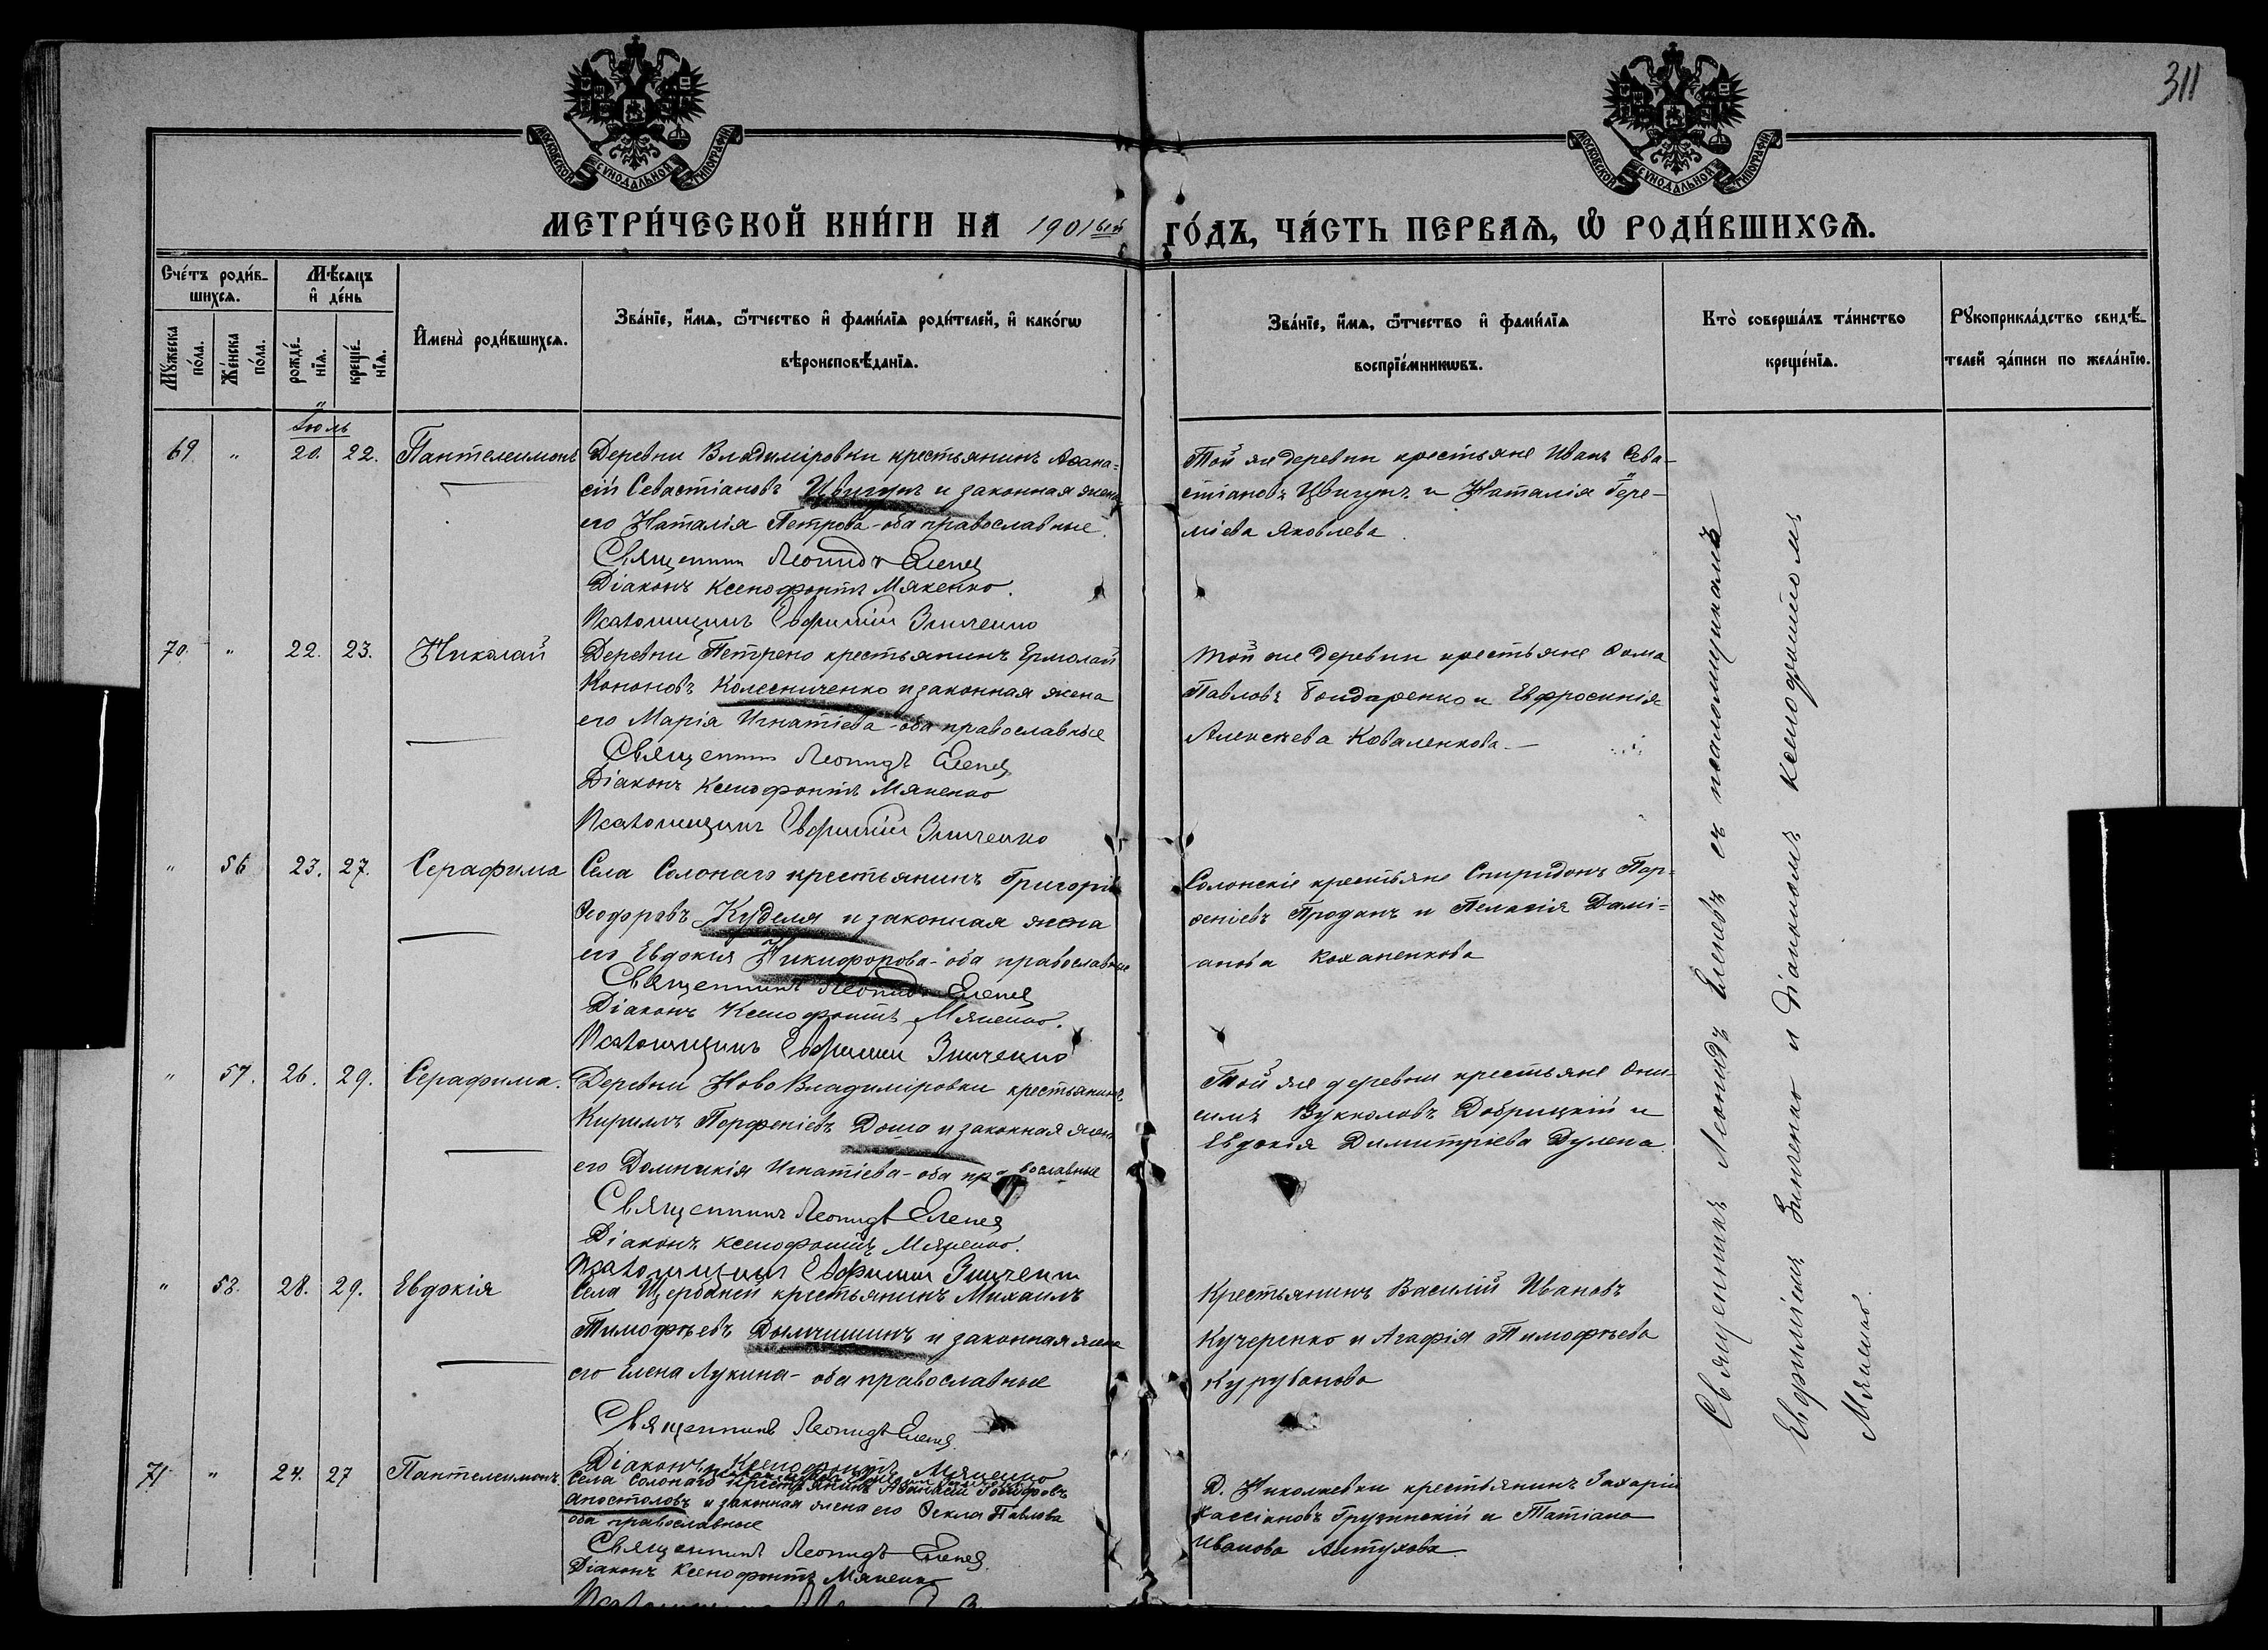 311
МОСКОВСКОЙ СѴНОДАЛЬНОЙ ТИПОГРАФІИ
МОСКОВСКОЙ СѴНОДАЛЬНОЙ ТИПОГРАФІИ
МЕТРИ́ЧЕСКОЙ КНИ́ГИ НА 1901ый ГО́ДЪ, ЧА́СТЬ ПЕРВАѦ, Ѡ РОДИ́ВШИХСѦ.
Сче́тъ роди́в-
шихсѧ.
Мѣ́сѧцъ
и҆ де́нь
Мꙋ́жеска
по́ла.
Же́нска
по́ла.
рожде́-
нїѧ.
креще́-
нїѧ.
И҆мена̀ роди́вшихсѧ.
Зва́нїе, и҆́мѧ, ѻ҆́тчество и҆ фами́лїѧ роди́телей, и҆ како́гѡ
вѣроисповѣ́данїѧ.
Зва́нїе, и҆́мѧ, ѻ҆́тчество и҆ фами́лїѧ
воспрїе́мникѡвъ.
Кто̀ соверша́лъ та́инство
креще́нїѧ.
Рꙋкоприкла́дство свидѣ́-
телей за́писи по жела́нїю.
Іюль
69. " 20. 22. Пантелеимонъ Деревни Владиміровки крестьянинъ Аѳана=
сій Севастіановъ Цвигунъ и законная жена
его Наталія Петрова - оба православные.
Священникъ Леонидъ Еленев
Діаконъ Ксенофонтъ Мякенко.
Псаломщикъ Евфимій Зинченко
Той же деревни крестьяне Иванъ Сева-
стіановъ Цвигунъ и Наталія Іере-
міева Яковлева.
70. " 22. 23. Николай Деревни Петрено крестьянинъ Ермолай
Кононовъ Колесниченко и законная жена
его Марія Игнатіева - оба православные
Священникъ Леонидъ Еленев
Діаконъ Ксенофонтъ Мякенко
Псаломщикъ Евфимій Зинченко
Той же деревни крестьяне Ѳома
Павловъ Бондаренко и Евфросинія
Алексѣева Коваленкова -
" 56 23. 27. Серафима Села Солонаго крестьянинъ Григорій
Ѳеодоровъ Куделя и законная жена
его Евдокія Никифорова - оба православные
Священникъ Леонидъ Еленев
Діаконъ Ксенофонтъ Мякенко.
Псаломщикъ Евфимій Зинченко
Солонскіе крестьяне Спиридонъ Пар-
ѳеніевъ Проданъ и Пелагія Дамі=
анова Коханенкова
" 57. 26. 29. Серафима. Деревни Ново Владиміровки крестьянинъ
Кириллъ Порфеніевъ Доша и законная жена
его Домникія Игнатіева - оба православные
Священникъ Леонидъ Еленев
Діаконъ Ксенофонтъ Мякенко.
Псаломщикъ Евфимій Зинченко
Той же деревни крестьяне Они-
симъ Вукколовъ Добрицкій и
Евдокія Димитріева Дулена.
" 58. 28. 29. Евдокія Села Щербаней крестьянинъ Михаилъ
Тимоѳеевъ Дымчишинъ и законная жена
его Елена Лукина - оба православные
Священникъ Леонидъ Еленев.
Діаконъ Ксенофонтъ Мякенко
Крестьянинъ Василій Ивановъ
Кучеренко и Агафія Тимофѣева
Курубанова
71 " 24. 27 Пантелеимонъ. Села Солонаго крестьянинъ
Апостоловъ и законная жена его Ѳекла Павлова
оба православные
Священникъ Леонидъ Еленев.
Діаконъ Ксенофонтъ Мякенко
Д. Николаевки крестьянинъ Захарій
Кассіановъ Грузинскій и Татіана
Иванова Алтухова.
Священникъ Леонидъ Еленевъ съ псаломщикомъ
Евфиміемъ Зинченко и Діакономъ Ксенофонтомъ
Мякенко.